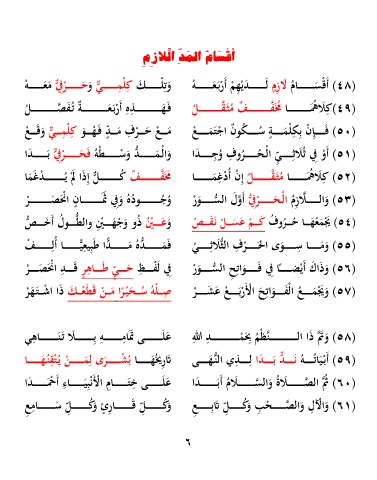 أَقْسَامُ المَدِّ الْلَازِمِ
(٤٨) أَقْسَامُ لَازِمٍ لَدَيْهِمْ أَرْبَعَهْ وَتِلْكَ كِلْمِيٌّ وَحَرْفِيٌّ مَعَهْ
(٤٩) كِلَاهُمَا مُخَفَّفٌ مُثَقَّلُ فَهَذِهِ أَرْبَعَةٌ تُفَصَّلُ
(٥٠) فَإِنْ بِكِلْمَةٍ سُكُونٌ اجْتَمَعْ مَعْ حَرْفِ مَدٍّ فَهْوَ كِلْمِيٌّ وَقَعْ
(٥١) أَوْ فِي ثُلَاثِيِّ الْحُرُوفِ وُجِدَا وَالْمَدُّ وَسْطُهُ فَحَرْفِيٌّ بَدَا
(٥٢) كِلَاهُمَا مُثَقَّلٌ إِنْ أُدْغِمَا مُخَفَّفٌ كُلٌّ إِذَا لَمْ يُدْغَمَا
(٥٣) وَاللَّازِمُ الْحَرْفِيُّ أَوَّلَ السُّوَرْ وُجُودُهُ وَفِي ثَمَانٍ انْحَصَرْ
(٥٤) يَجْمَعُهَا حُرُوفُ كَمْ عَسَلْ نَقَصْ وَعَيْنُ ذُو وَجْهَيْنِ والطُّولُ أَخَصْ
(٥٥) وَمَا سِوَى الحَرْفِ الثُّلَاثِيِّ لَا أَلِفْ فَمَدُّهُ مَدًّا طَبِيعِيًّا أُلِفْ
(٥٦) وَذَاكَ أَيْضًا فِي فَوَاتِحِ السُّوَرْ فِي لَفْظِ حَيٍّ طَاهِرٍ قَدِ انْحَصَرْ
(٥٧) وَيَجْمَعُ الْفَوَاتِحَ الْأَرْبَعْ عَشَرْ صِلْهُ سُحَيْرًا مَنْ قَطَعْكَ ذَا اشْتَهَرْ
(٥٨) وَتَمَّ ذَا النَّظْمُ بِحَمْدِ اللهِ عَلَى تَمَامِهِ بِلَا تَنَاهِي
(٥٩) أَبْيَاتُهُ نَدٌّ بَدَا لِذِي النُّهَى تَارِيخُهَا بُشْرَى لِمَنْ يُتْقِنُهَا
(٦٠) ثُمَّ الصَّلَاةُ وَالسَّلَامُ أَبَدَا عَلَى خِتَامِ الْأَنْبِيَاءِ أَحْمَدَا
(٦١) وَالْآلِ وَالصَّحْبِ وَكُلِّ تَابِعِ وَكُلِّ قَارِئٍ وَكُلِّ سَامِعِ
٦